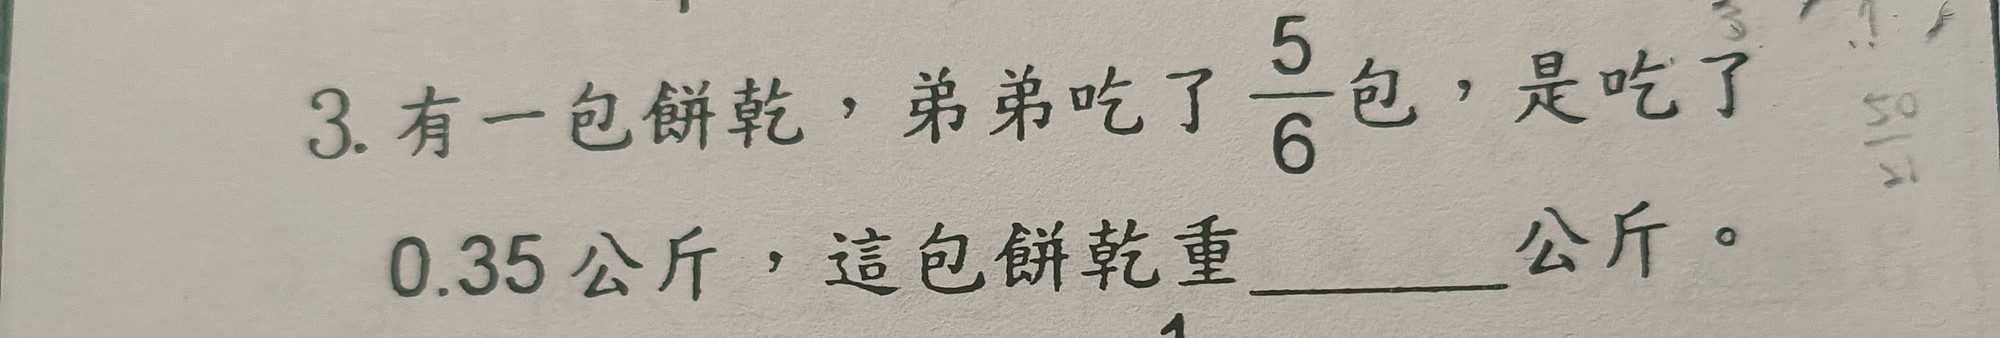 3. 有一包餅乾，弟弟吃了5/6包，是吃了
0.35公斤，這包餅乾重______公斤。